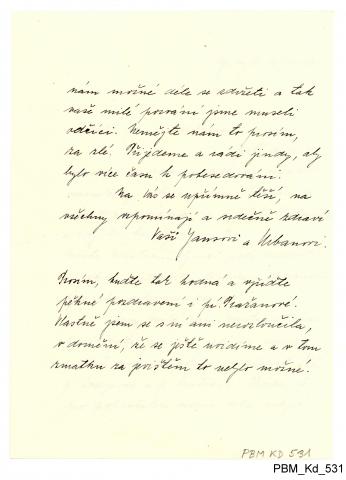 nám možné déle se zdržeti a tak
vaše milé pozvání jsme museli
odříci. Nemějte nám to prosím,
za zlé. Přijdeme a rádi jindy, aby
bylo více času k pobesedování.
Na Vás se upřímně těší, na
všechny vzpomínají a srdečně zdraví
Vaši Jansovi a Urbanovi.
Prosím, buďte tak hodná a vyřiďte
pěkné pozdravení i pí. Pražanové.
Vlastně jsem se s ní ani nerozloučila,
v domění, že se ještě uvidíme a v tom
zmatku za jištěm to nebylo možné.
PBM KD 531
PBM_Kd_531